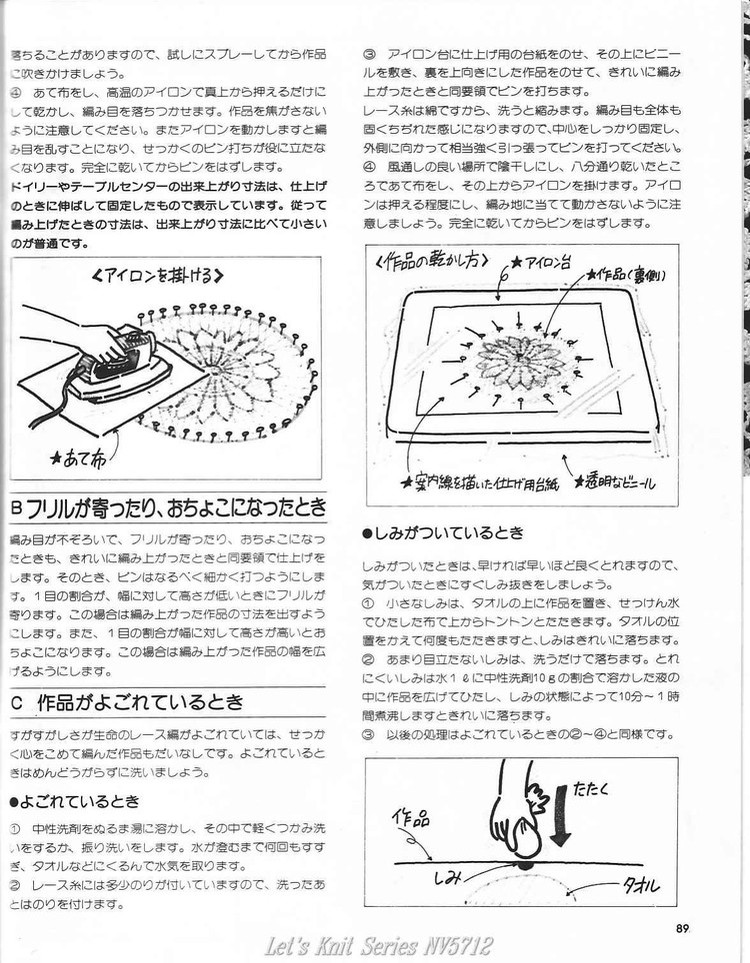 落ちることがありますので、試しにスプレーしてから作品
に吹きかけましょう。
④ あて布をし、高温のアイロンで真上から押えるだけに
して乾かし、編み目を落ちつかせます。作品を焦がさない
ように注意してください。またアイロンを動かしますと編
み目を乱すことになり、せっかくのピン打ちが役に立たな
くなります。完全に乾いてからピンをはずします。
ドイリーやテーブルセンターの出来上がり寸法は、仕上げ
のときに伸ばして固定したもので表示しています。従って
編み上げたときの寸法は、出来上がり寸法に比べて小さい
のが普通です。
<アイロンを掛ける>
★あて布
B フリルが寄ったり、おちょこになったとき
編み目が不ぞろいで、フリルが寄ったり、おちょこになっ
たときも、きれいに編み上がったときと同要領で仕上げを
します。そのとき、ピンはなるべく細かく打つようにしま
す。1目の割合が、幅に対して高さが低いときにフリルが
寄ります。この場合は編み上がった作品の寸法を出すよう
にします。また、1目の割合が幅に対して高さが高いとお
ちょこになります。この場合は編み上がった作品の幅を広
げるようにします。
C 作品がよごれているとき
すがすがしさが生命のレース編がよごれていては、せっか
く心をこめて編んだ作品もだいなしです。よごれていると
きはめんどうがらずに洗いましょう。
●よごれているとき
① 中性洗剤をぬるま湯に溶かし、その中で軽くつかみ洗
いをするか、振り洗いをします。水が澄むまで何回もすす
ぎ、タオルなどにくるんで水気を取ります。
② レース糸には多少のりが付いていますので、洗ったあ
とはのりを付けます。
③ アイロン台に仕上げ用の台紙をのせ、その上にビニー
ルを敷き、裏を上向きにした作品をのせて、きれいに編み
上がったときと同要領でピンを打ちます。
レース糸は綿ですから、洗うと縮みます。編み目も全体も
固くちぢれた感じになりますので、中心をしっかり固定し、
外側に向かって相当強く引っ張ってピンを打ってください。
④ 風通しの良い場所で陰干しにし、八分通り乾いたとこ
ろであて布をし、その上からアイロンを掛けます。アイロ
ンは押える程度にし、編み地に当てて動かさないように注
意しましょう。完全に乾いてからピンをはずします。
<作品の乾かし方>
★アイロン台
★作品(裏側)
★案内線を描いた仕上げ用台紙
★透明なビニール
●しみがついているとき
しみがついたときは、早ければ早いほど良くとれますので、
気がついたときにすぐしみ抜きをしましょう。
① 小さなしみは、タオルの上に作品を置き、せっけん水
でひたした布で上からトントンとたたきます。タオルの位
置をかえて何度もたたきますと、しみはきれいに落ちます。
② あまり目立たないしみは、洗うだけで落ちます。とれ
にくいしみは水1ℓに中性洗剤10gの割合で溶かした液の
中に作品を広げてひたし、しみの状態によって10分~1時
間煮沸しますときれいに落ちます。
③ 以後の処理はよごれているときの②~④と同様です。
たたく
作品
しみ
タオル
89
Let's Knit Series NV5712